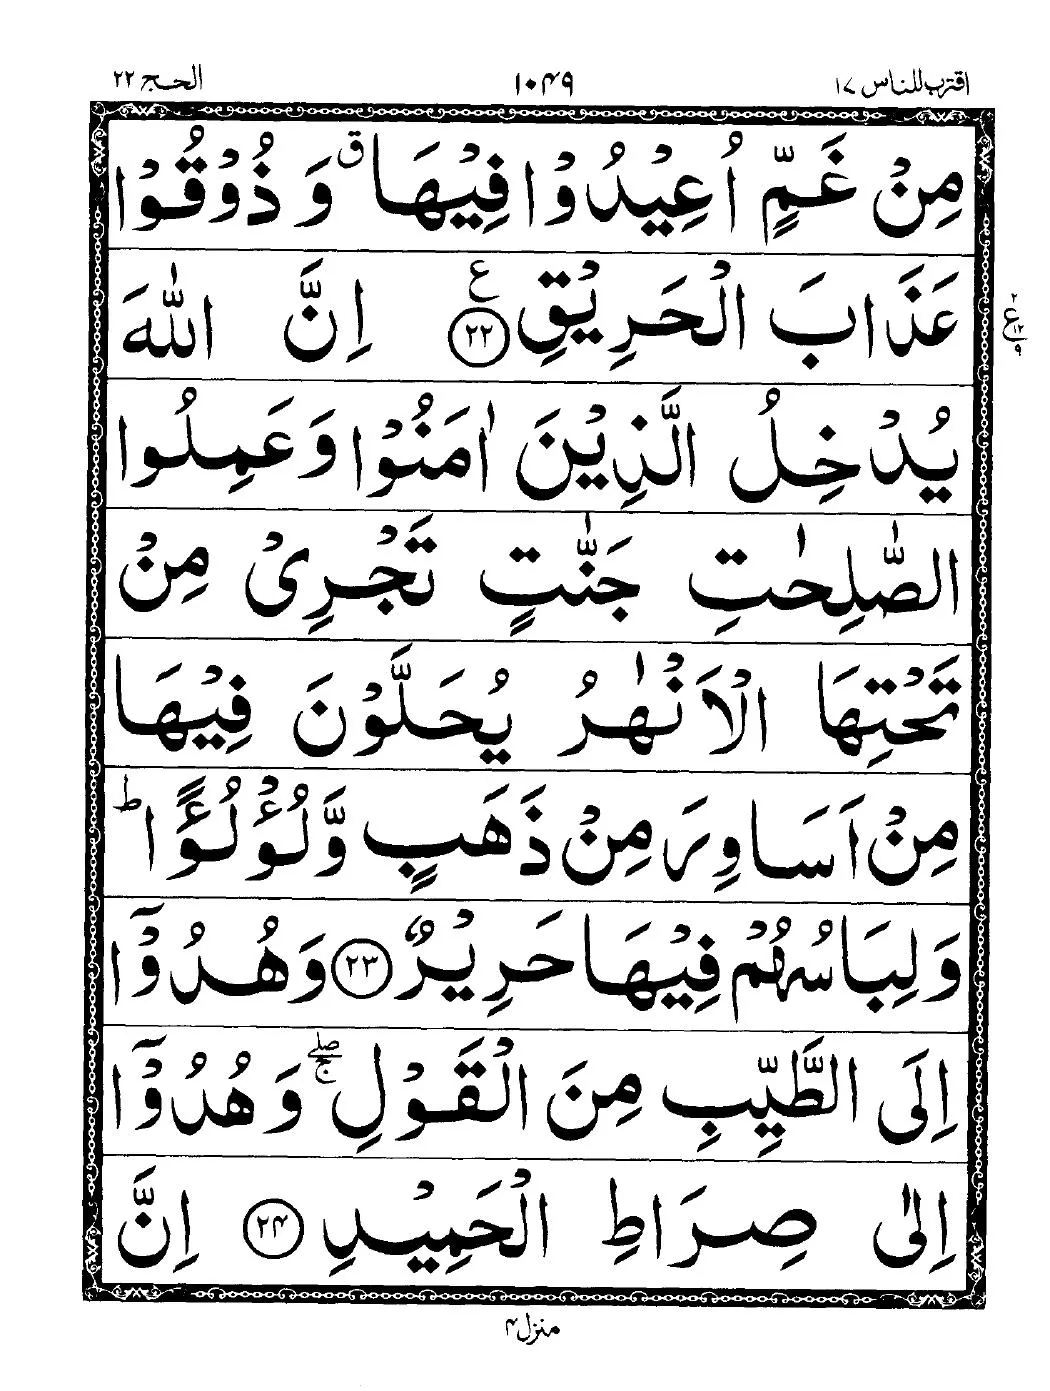 اقترب للناس ١٧ ١٠٤٩ الحج ٢٢
مِنْ غَمٍّ اُعِيْدُوْا فِيْهَا ۗ وَ ذُوْقُوْا
عَذَابَ الْحَرِيْقِ ﴿٢٢﴾ ع اِنَّ اللّٰهَ
٢ ع ١٢ ٩
يُدْخِلُ الَّذِيْنَ اٰمَنُوْا وَعَمِلُوا
الصّٰلِحٰتِ جَنّٰتٍ تَجْرِيْ مِنْ
تَحْتِهَا الْاَنْهٰرُ يُحَلَّوْنَ فِيْهَا
مِنْ اَسَاوِرَ مِنْ ذَهَبٍ وَّلُؤْلُؤًا ؕ
وَلِبَاسُهُمْ فِيْهَا حَرِيْرٌ ﴿٢٣﴾ وَهُدُوْۤا
اِلَى الطَّيِّبِ مِنَ الْقَوْلِ ۖۚ وَهُدُوْۤا
اِلٰى صِرَاطِ الْحَمِيْدِ ﴿٢٤﴾ اِنَّ
منزل ۴